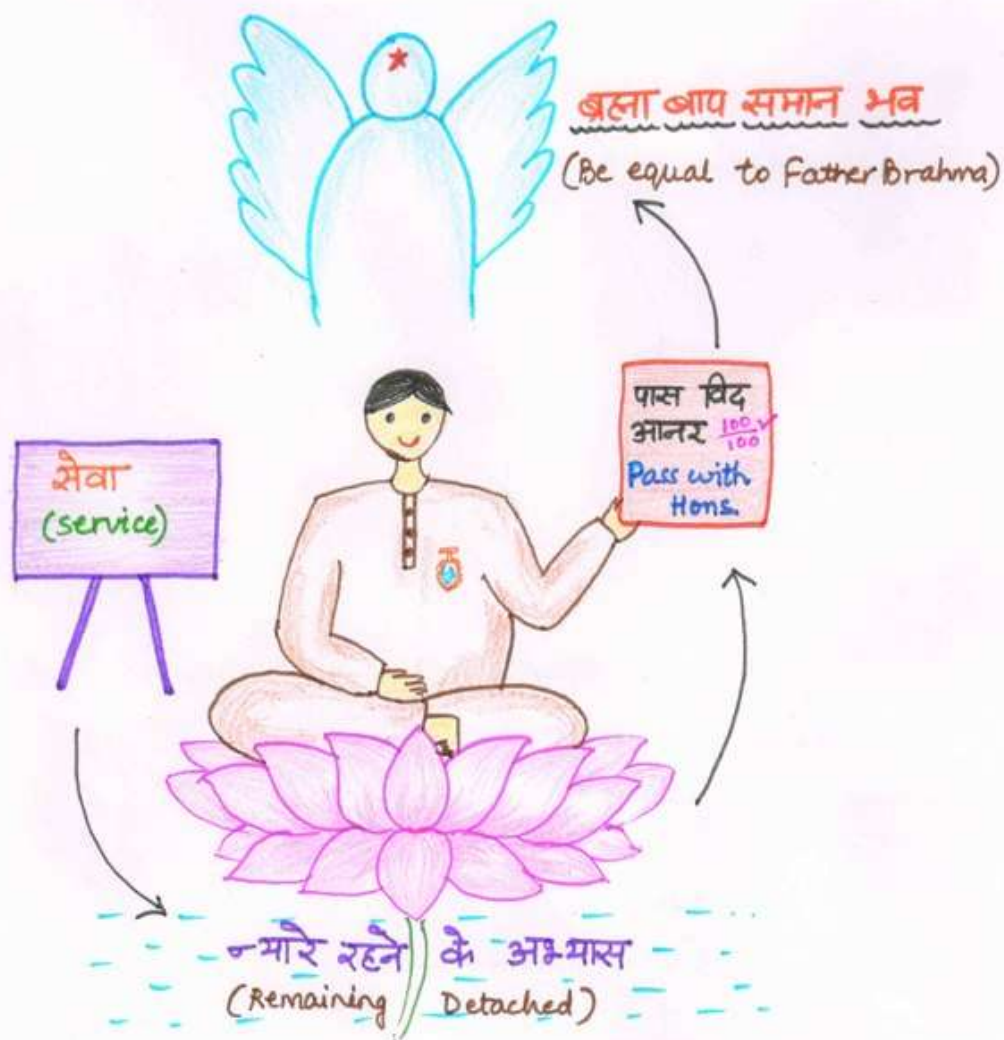 ब्रह्मा बाप समान भव
(Be equal to Father Brahma)
पास विद
आनर 100/100
Pass with
Hons.
सेवा
(service)
न्यारे रहने के अभ्यास
(Remaining Detached)